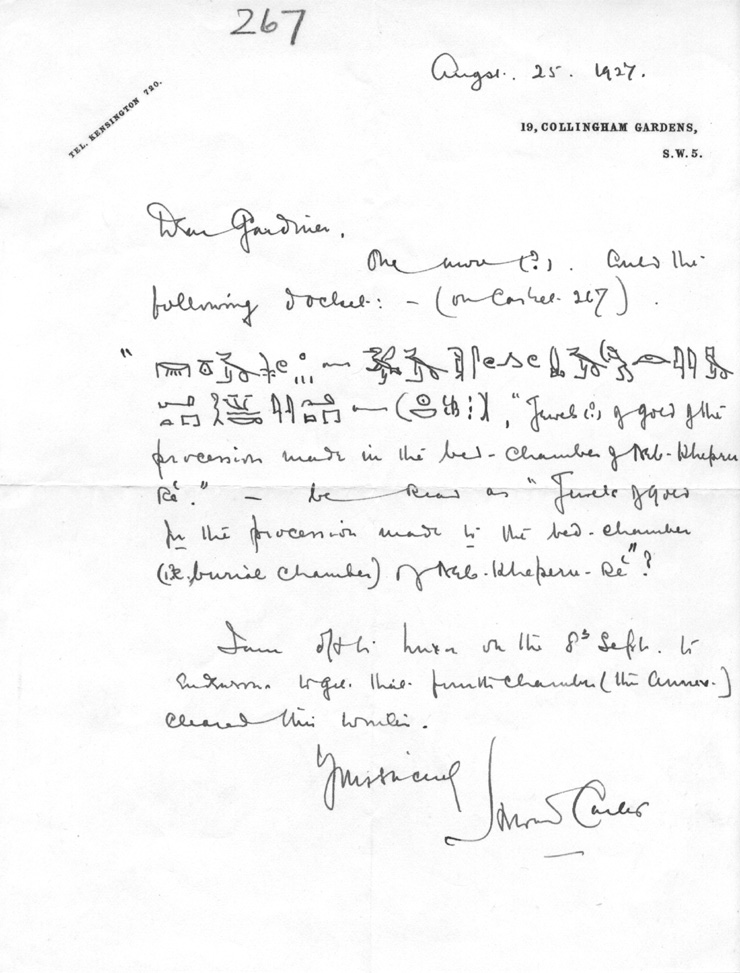 267
Augst. 25. 1927.
TEL. KENSINGTON 720.
19, COLLINGHAM GARDENS,
S.W. 5.
Dear Gardiner,
One more (?). Could the
following docket: — (on Casket 267).
"Jewels (?) of gold of the
procession made in the bed-chamber of Neb-Kheperu
Rē‘." — be read as "Jewels of gold
in the procession made to the bed-chamber
(i.e. burial chamber) of Neb-Kheperu-Rē‘"?
I am off to Luxor on the 8th Septb. to
endeavour to get that fourth chamber (the Annex.)
cleared this winter.
Yours sincerely
Howard Carter